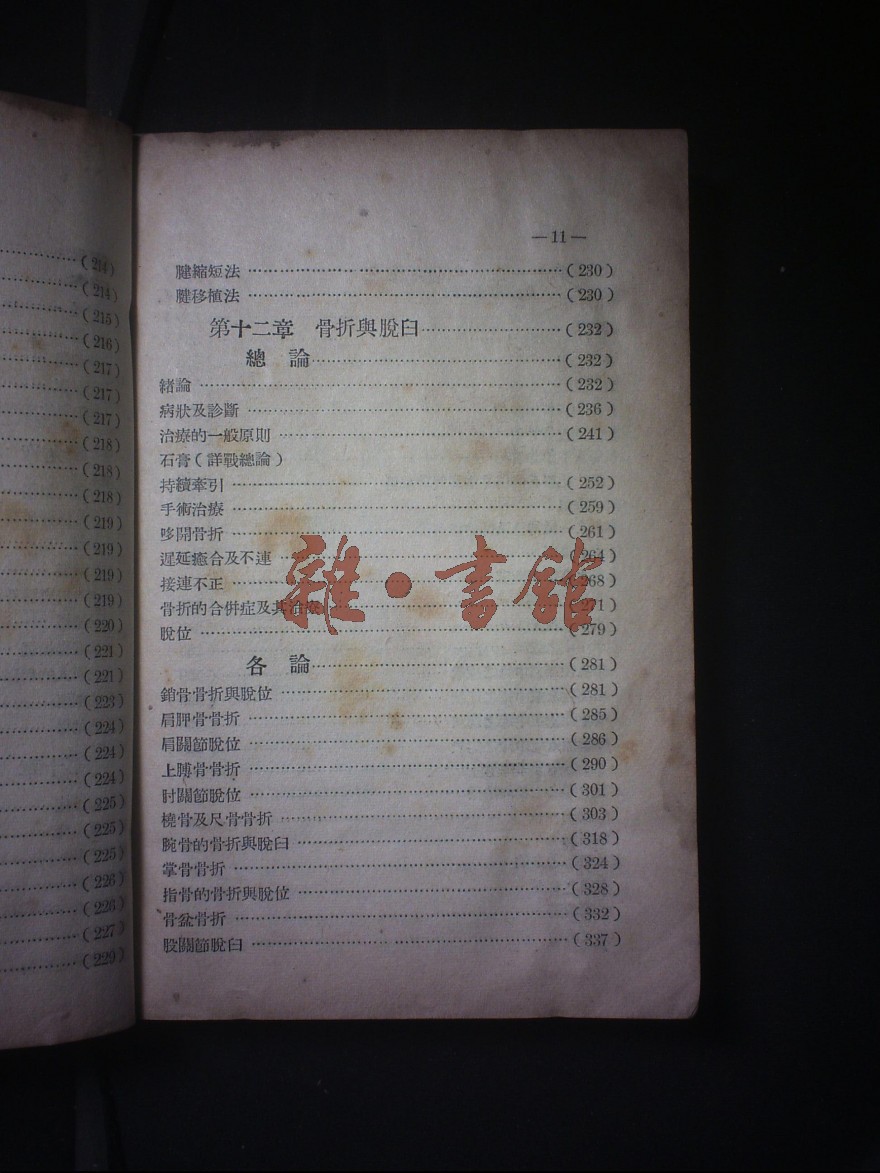 (214)
(214)
(215)
(216)
(217)
(217)
(217)
(218)
(218)
(218)
(219)
(219)
(219)
(219)
(220)
(221)
(221)
(223)
(224)
(224)
(224)
(225)
(225)
(225)
(226)
(226)
(227)
(229)
—11—
腱縮短法……(230)
腱移植法……(230)
第十二章 骨折與脫臼……(232)
總 論……(232)
緒論……(232)
病狀及診斷……(236)
治療的一般原則……(241)
石膏(詳戰總論)
持續牽引……(252)
手術治療……(259)
哆開骨折……(261)
遲延癒合及不連……(264)
接連不正……(268)
骨折的合併症及其治療……(271)
脫位……(279)
各 論……(281)
銷骨骨折與脫位……(281)
肩胛骨骨折……(285)
肩關節脫位……(286)
上膊骨骨折……(290)
肘關節脫位……(301)
橈骨及尺骨骨折……(303)
腕骨的骨折與脫臼……(318)
掌骨骨折……(324)
指骨的骨折與脫位……(328)
骨盆骨折……(332)
股關節脫臼……(337)
雜·書館